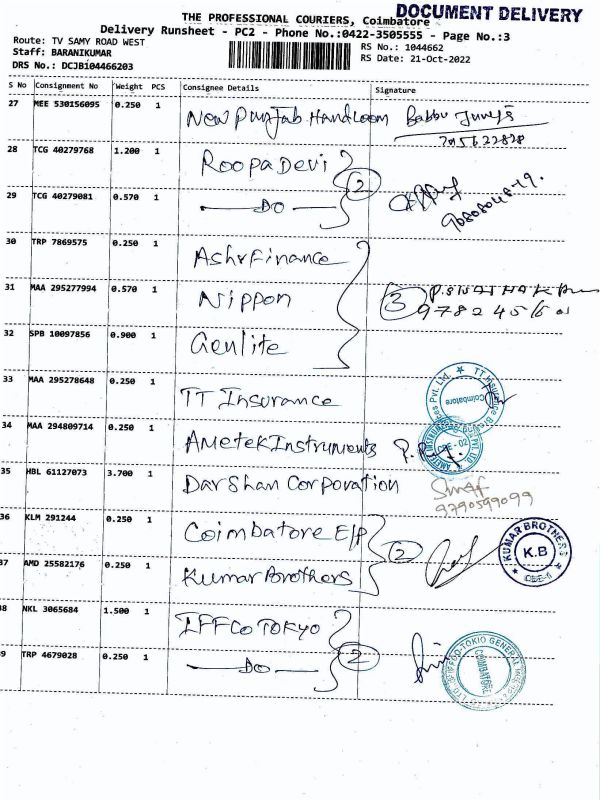 DOCUMENT DELIVERY
THE PROFESSIONAL COURIERS, Coimbatore
Delivery Runsheet - PC2 - Phone No.:0422-3505555 - Page No.:3
Route: TV SAMY ROAD WEST
RS No.: 1044662
Staff: BARANIKUMAR
RS Date: 21-Oct-2022
DRS No.: DCJB104466203
S No Consignment No Weight PCS Consignee Details Signature
27 MEE 530156095 0.250 1 New Punjab Handloom Babbu
28 TCG 40279768 1.200 1 Roopa Devi
2
29 TCG 40279081 0.570 1 — DO —
9080804819.
30 TRP 7869575 0.250 1 Ashv Finance
31 MAA 295277994 0.570 1 Nippon 3
32 SPB 10097856 0.900 1 Genlite
33 MAA 295278648 0.250 1 TT Insurance
Coimbatore
34 MAA 294809714 0.250 1 Ametek Instruments
CBE - 02
35 HBL 61127073 3.700 1 Darshan Corporation
9790599099
36 KLM 291244 0.250 1 Coimbatore E/P
2
KUMAR BROTHERS
K.B
37 AMD 25582176 0.250 1 Kumar Brothers
38 NKL 3065684 1.500 1 IFFCO TOKYO
39 TRP 4679028 0.250 1 — DO — 2
IFFCO-TOKIO GENERAL
COIMBATORE